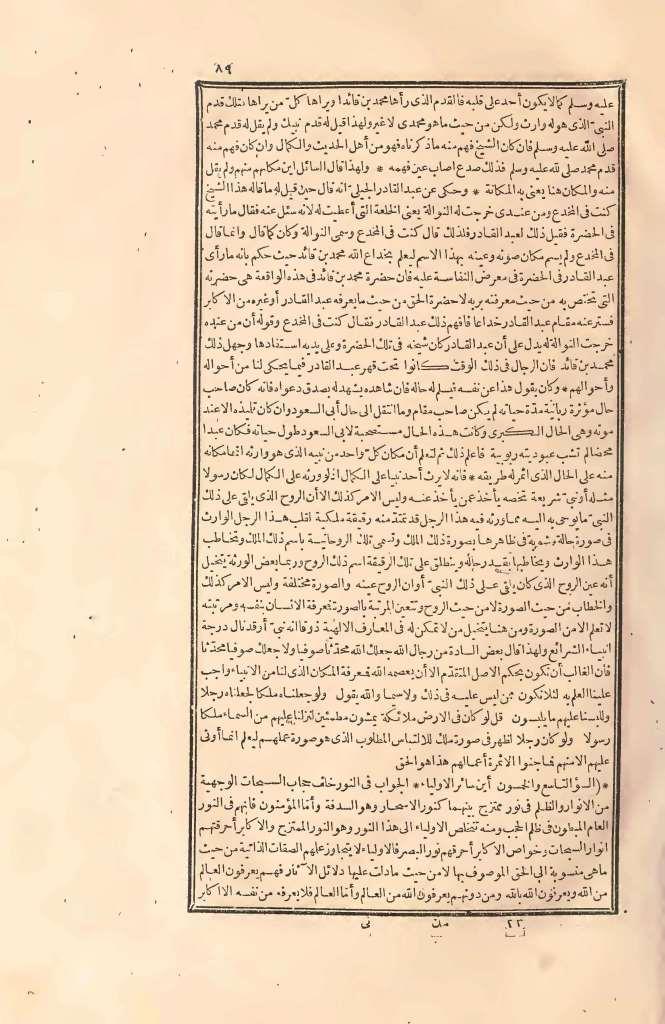 ٨٩
عليه وسلم كما لا يكون أحد على قلبه فالقدم الذى رآها محمد بن قائد أو يراها كل من يراها فتلك قدم
النبى الذى هو له وارث ولكن من حيث ما هو محمدى لا غير ولهذا قيل له قدم نبيك ولم يقل له قدم محمد
صلى الله عليه وسلم فان كان الشيخ فهم منه ما ذكرناه فهو من أهل الحديث والكمال وان كان فهم منه
قدم محمد صلى الله عليه وسلم فذلك صدع أصاب عين فهمه * ولهذا قال السائل اين مكانهم منهم ولم يقل
منه والمكان هنا يعنى به المكانة * وحكى عن عبد القادر الجيلى انه قال حين قيل له ما قاله هذا الشيخ
كنت فى المخدع ومن عندى خرجت له النوالة يعنى الخلعة التى أعطيت له لانه سئل عنه فقال ما رأيته
فى الحضرة فقيل ذلك لعبد القادر فلذلك قال كنت فى المخدع وسمى النوالة وكان كما قال وانما قال
فى المخدع ولم يسم مكان صونه وعينه بهذا الاسم ليعلم بخداع الله محمد بن قائد حيث حكم بانه ما رأى
عبد القادر فى الحضرة فى معرض النفاسة عليه فان حضرة محمد بن قائد فى هذه الواقعة هى حضرته
التى تختص به من حيث معرفته بربه لا حضرة الحق من حيث ما يعرفه عبد القادر أو غيره من الاكابر
فستر عنه مقام عبد القادر خداعا فافهم ذلك عبد القادر فقال كنت فى المخدع وقوله أن من عنده
خرجت النوالة له يدل على أن عبد القادر كان شيخه فى تلك الحضرة وعلى يديه استفادها وجهل ذلك
محمد بن قائد فان الرجال فى ذلك الوقت كانوا تحت قهر عبد القادر فيما يحكى لنا من أحواله
وأحوالهم * وكان يقول هذا عن نفسه فيسلم له حاله فان شاهده يشهد له بصدق دعواه فانه كان صاحب
حال مؤثرة ربانية مدة حياته لم يكن صاحب مقام وما انتقل الى حال أبى السعود وان كان تليذه الا عند
موته وهى الحال الكبرى وكانت هذه الحال مستصحبة لابى السعود طول حياته فكان عبدا
محضا لم تشب عبوديته ربوبية فاعلم ذلك ثم لتعلم أن مكان كل واحد من نبيه الذى هو وارثه انما مكانه
منه على الحال الذى اثمر له طريقه * فانه لا يرث أحد نبيا على الكمال اذ لو ورثه على الكمال لكان رسولا
مثله أو نبى شريعة تخصه يأخذ عمن يأخذ عنه وليس الامر كذلك الا أن الروح الذى يلقى على ذلك
النبى ما يوحى به اليه مما ورثه فيه هذا الرجل قد تمتد منه رقيقة ملكية لقلب هذا الرجل الوارث
فى صورة حالة مشوبة فى ظاهرها بصورة ذلك الملك وتسمى تلك الروحانية باسم ذلك الملك وتخاطب
هذا الوارث ويخاطبها بقدر حاله وينطلق على تلك الرقيقة اسم ذلك الروح وربما بعض الورثة يتخيل
أنه عين الروح الذى كان يلقى على ذلك النبى أو ان الروح عينه والصورة مختلفة وليس الامر كذلك
والخطاب من حيث الصورة لا من حيث الروح وتتعين المرتبة بالصورة فمعرفة الانسان بنفسه ومرتبته
لا تعلم الا من الصورة ومن هنا يتخيل من لا تمكن له فى المعارف الالهية ذوقا انه نبى أو قد نال درجة
انبياء الشرائع ولهذا قال بعض السادة من رجال الله جعلك الله محدثا صوفيا ولا جعلك صوفيا محدثا
فان الغالب أن تكون بحكم الاصل المتقدم الا أن يعصمه الله فمعرفة المكان الذى لنا من الانبياء واجب
علينا العلم به لئلا نكون ممن لبس عليه فى ذلك ولا سيما والله يقول ولو جعلناه ملكا لجعلناه رجلا
وللبسنا عليهم ما يلبسون قل لو كان فى الارض ملائكة يمشون مطمئنين لنزلنا عليهم من السماء ملكا
رسولا ولو كان رجلا لظهر فى صورة ملك للالتباس المطلوب الذى هو صورة عملهم ليعلم انما أوتى
عليهم الا منهم فما جنوا الا ثمرة أعمالهم هذا هو الحق
* (السؤال التاسع والخمسون أين سائر الاولياء * الجواب فى النور خلف حجاب السبحات الوجهية
من الانوار والظلم فى نور ممتزج بينهما كنور الاسحار وهو السدفة وأما المؤمنون فانهم فى النور
العام المبطون فى ظلم الحجب ومنه تتخلص الاولياء الى هذا النور وهو النور الممتزج والاكابر أحرقتهم
انوار السبحات وخواص الاكابر أحرقهم نور البصر فالاولياء لا يتجاوز علمهم الصفات الذاتية من حيث
ما هى منسوبة الى الحق الموصوف بها لا من حيث ما دلت عليها دلائل الآثار فهم يعرفون العالم
من الله ويعرفون الله بالله ومن دونهم يعرفون الله من العالم وأما العالم فلا يعرفه من نفسه الا اكابر
٢٣ مك نى